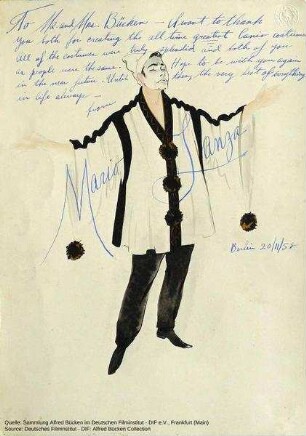 To Mr and Mrs. Bücken – I want to thank
you both for creating the all time greatest Lanza costumes
all of the costumes were truly splendid and both of you
as people were the same. Hope to be with you again
in the near future. Until then, the very best of everything
in life always –
from
Mario Lanza
Berlin 20/11/58
Quelle: Sammlung Alfred Bücken im Deutschen Filminstitut - DIF e.V., Frankfurt (Main)
Source: Deutsches Filminstitut - DIF: Alfred Bücken Collection